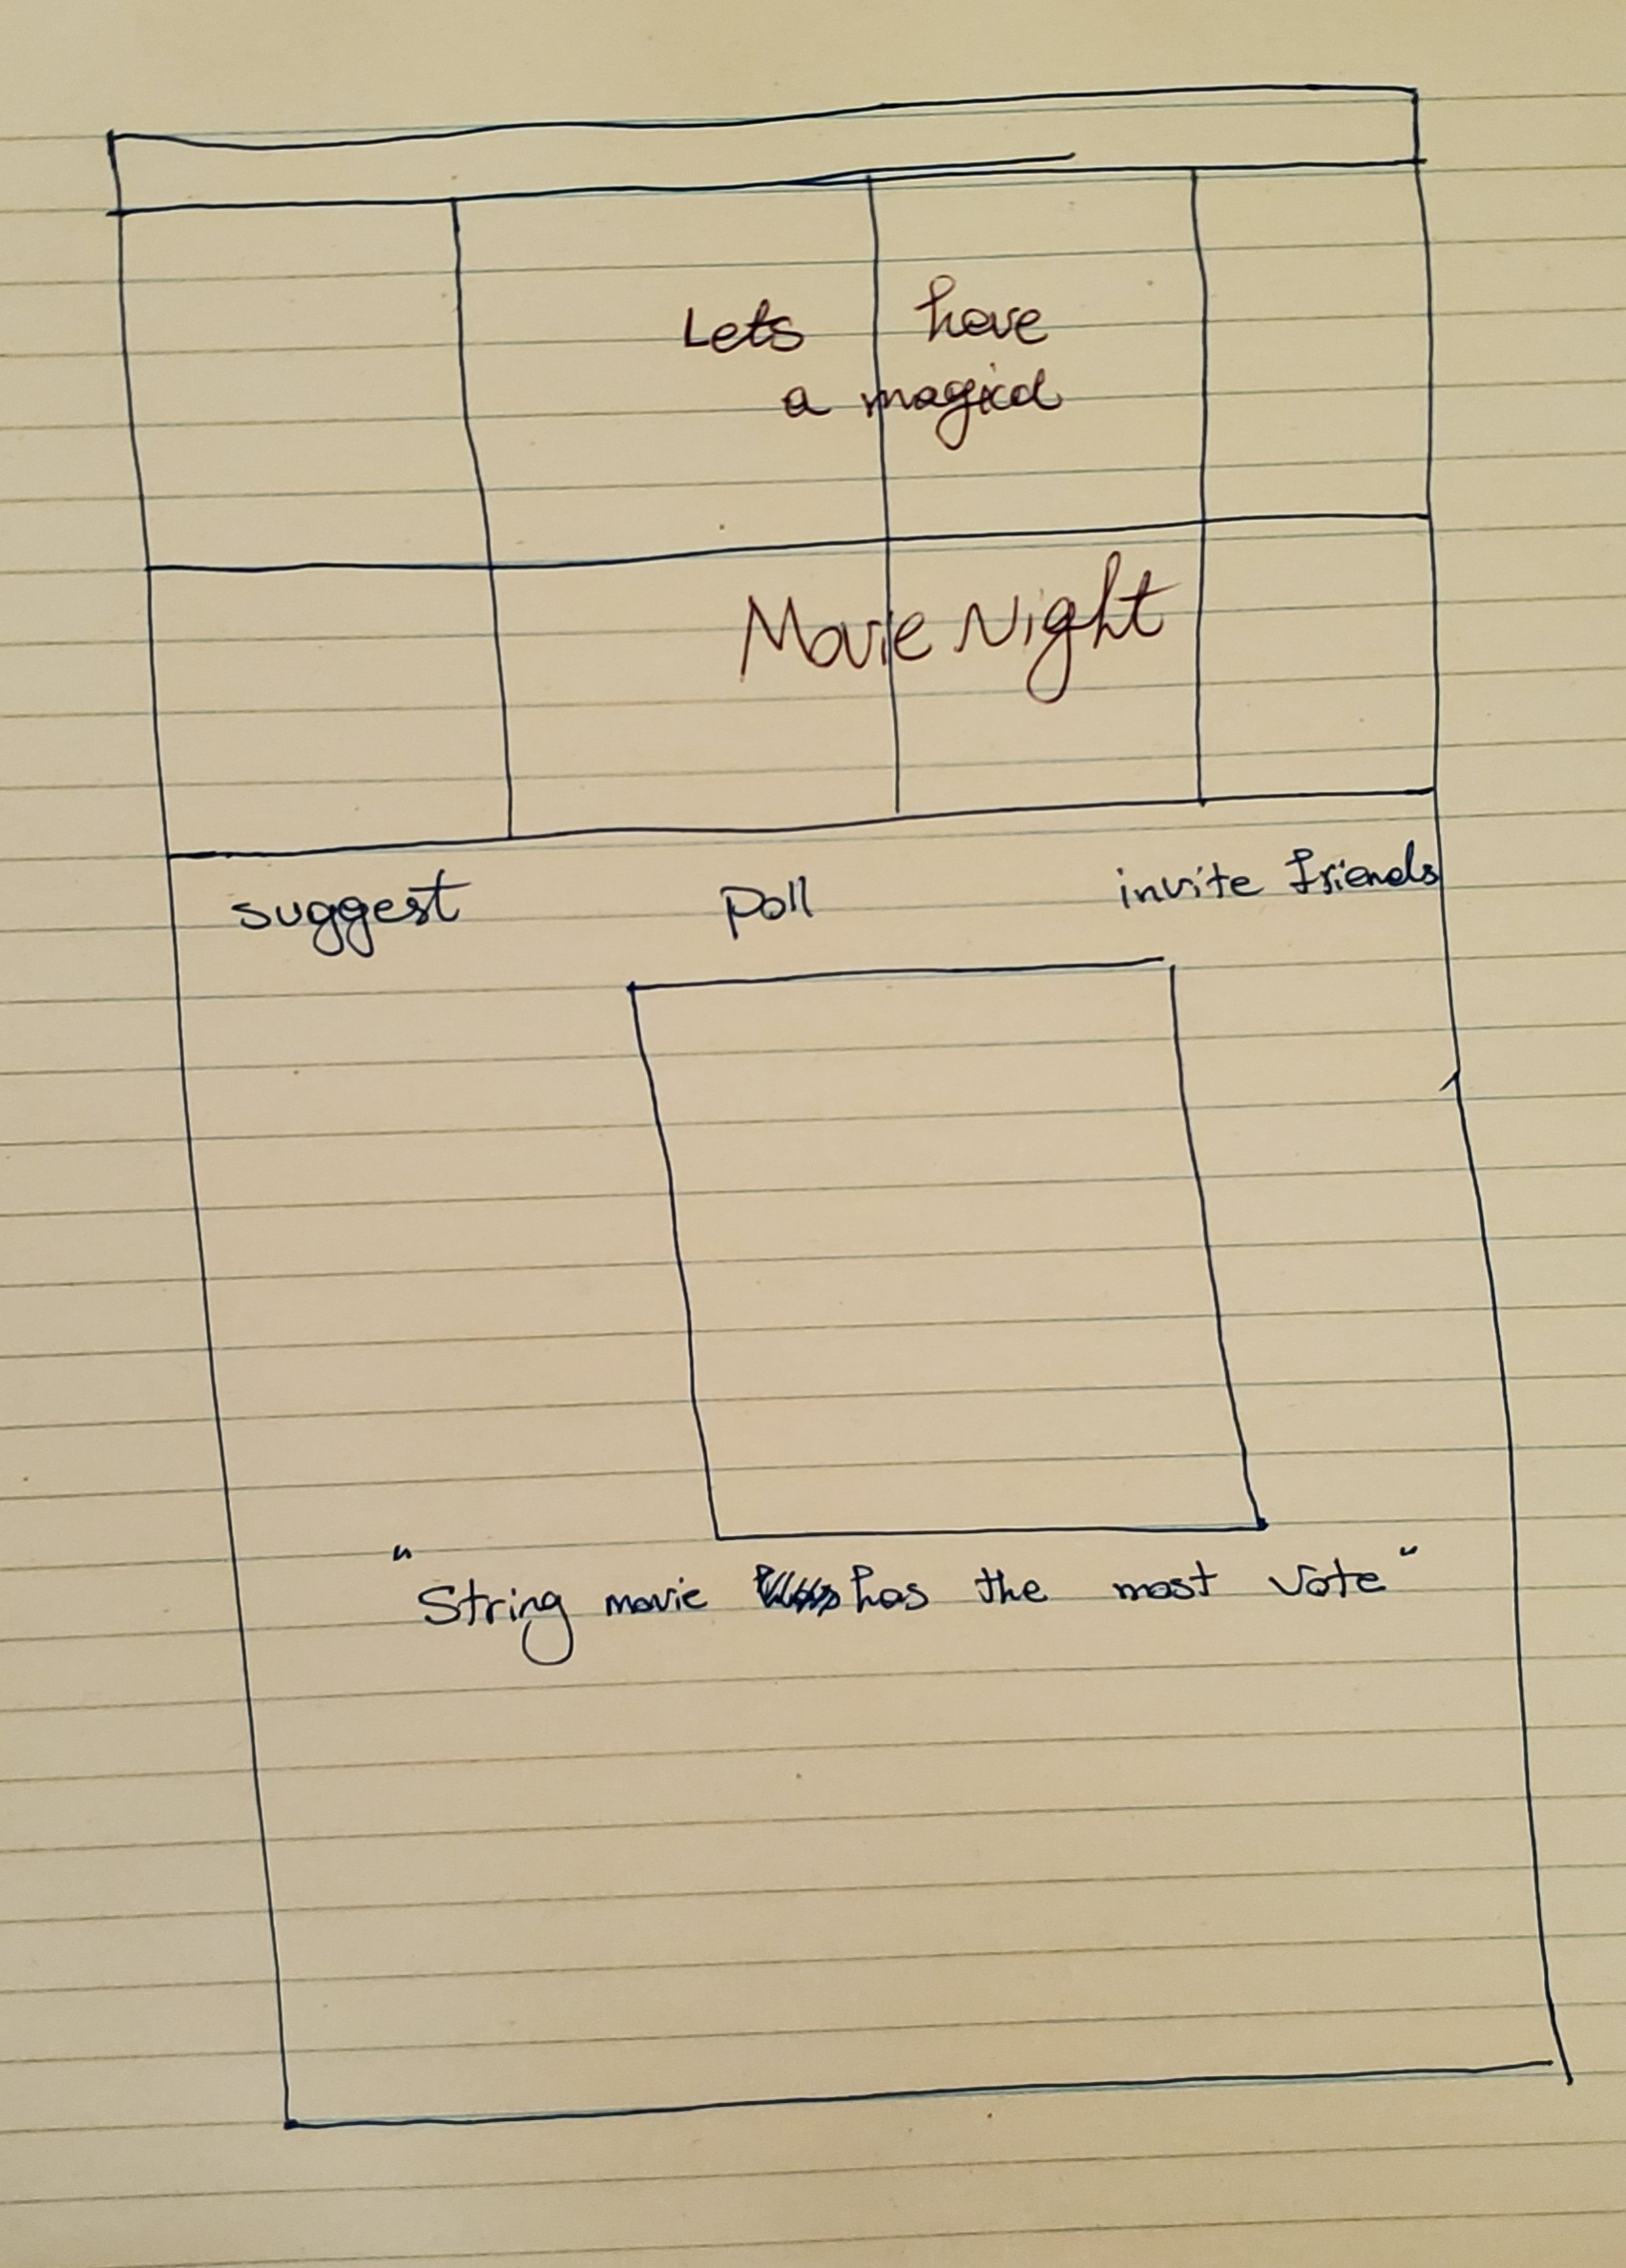 Lets have
a magical
Movie Night
suggest poll invite friends
"String movie has the most vote"